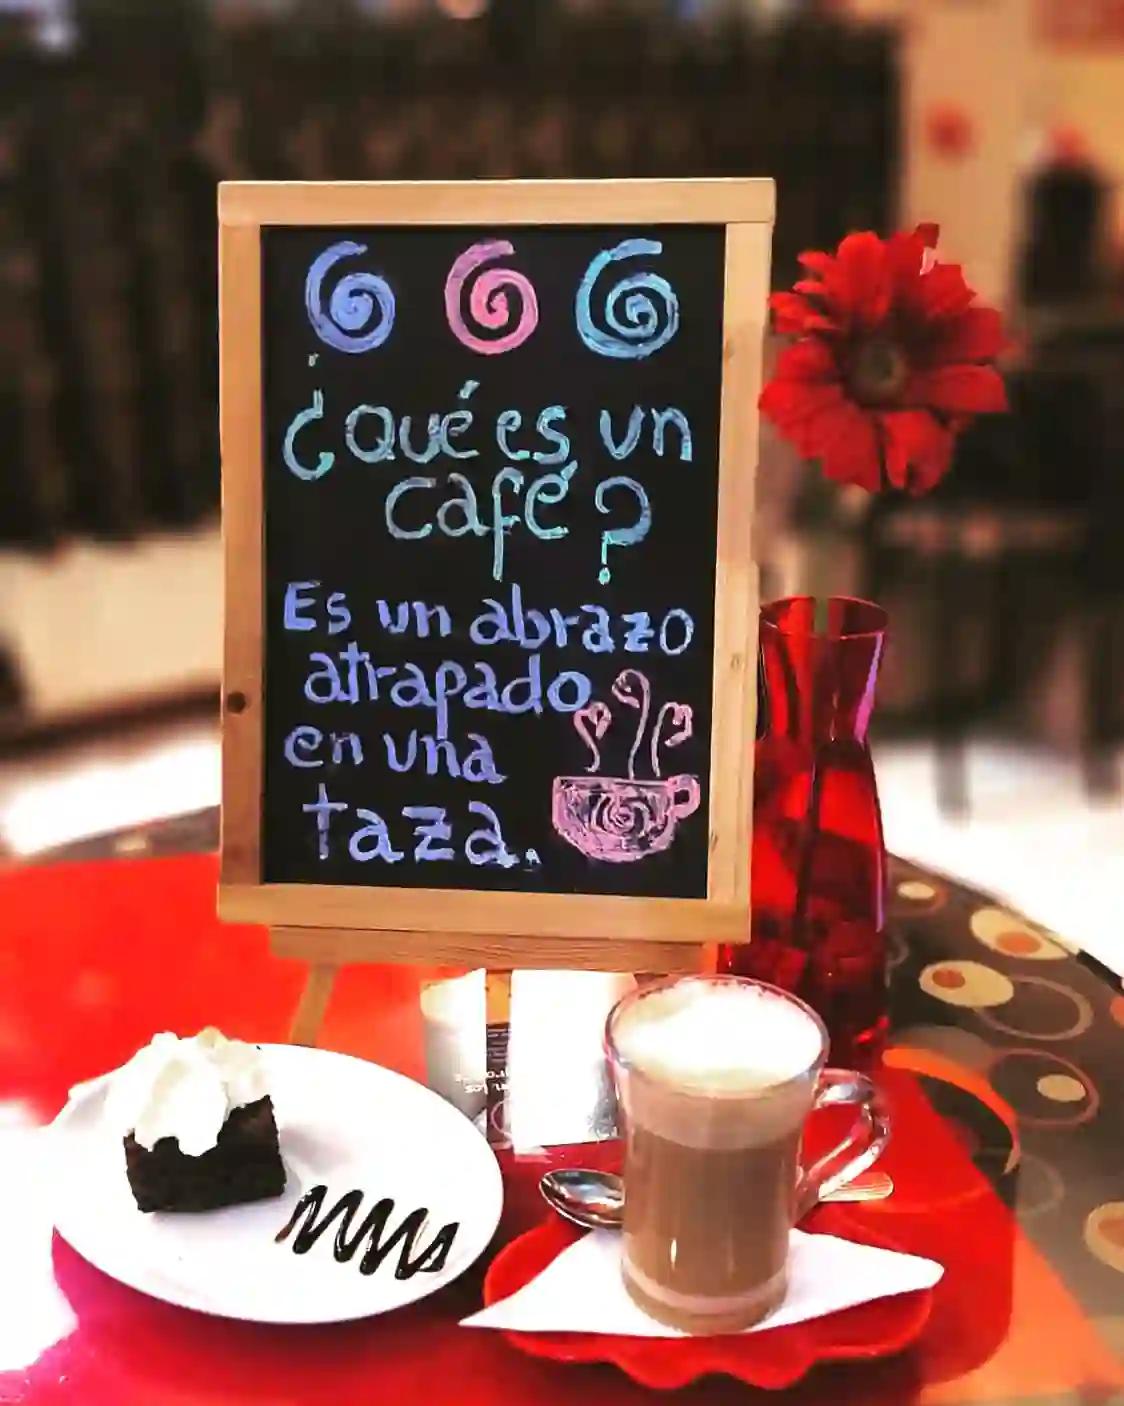 ¿Qué es un
café?
Es un abrazo
atrapado
en una
taza.